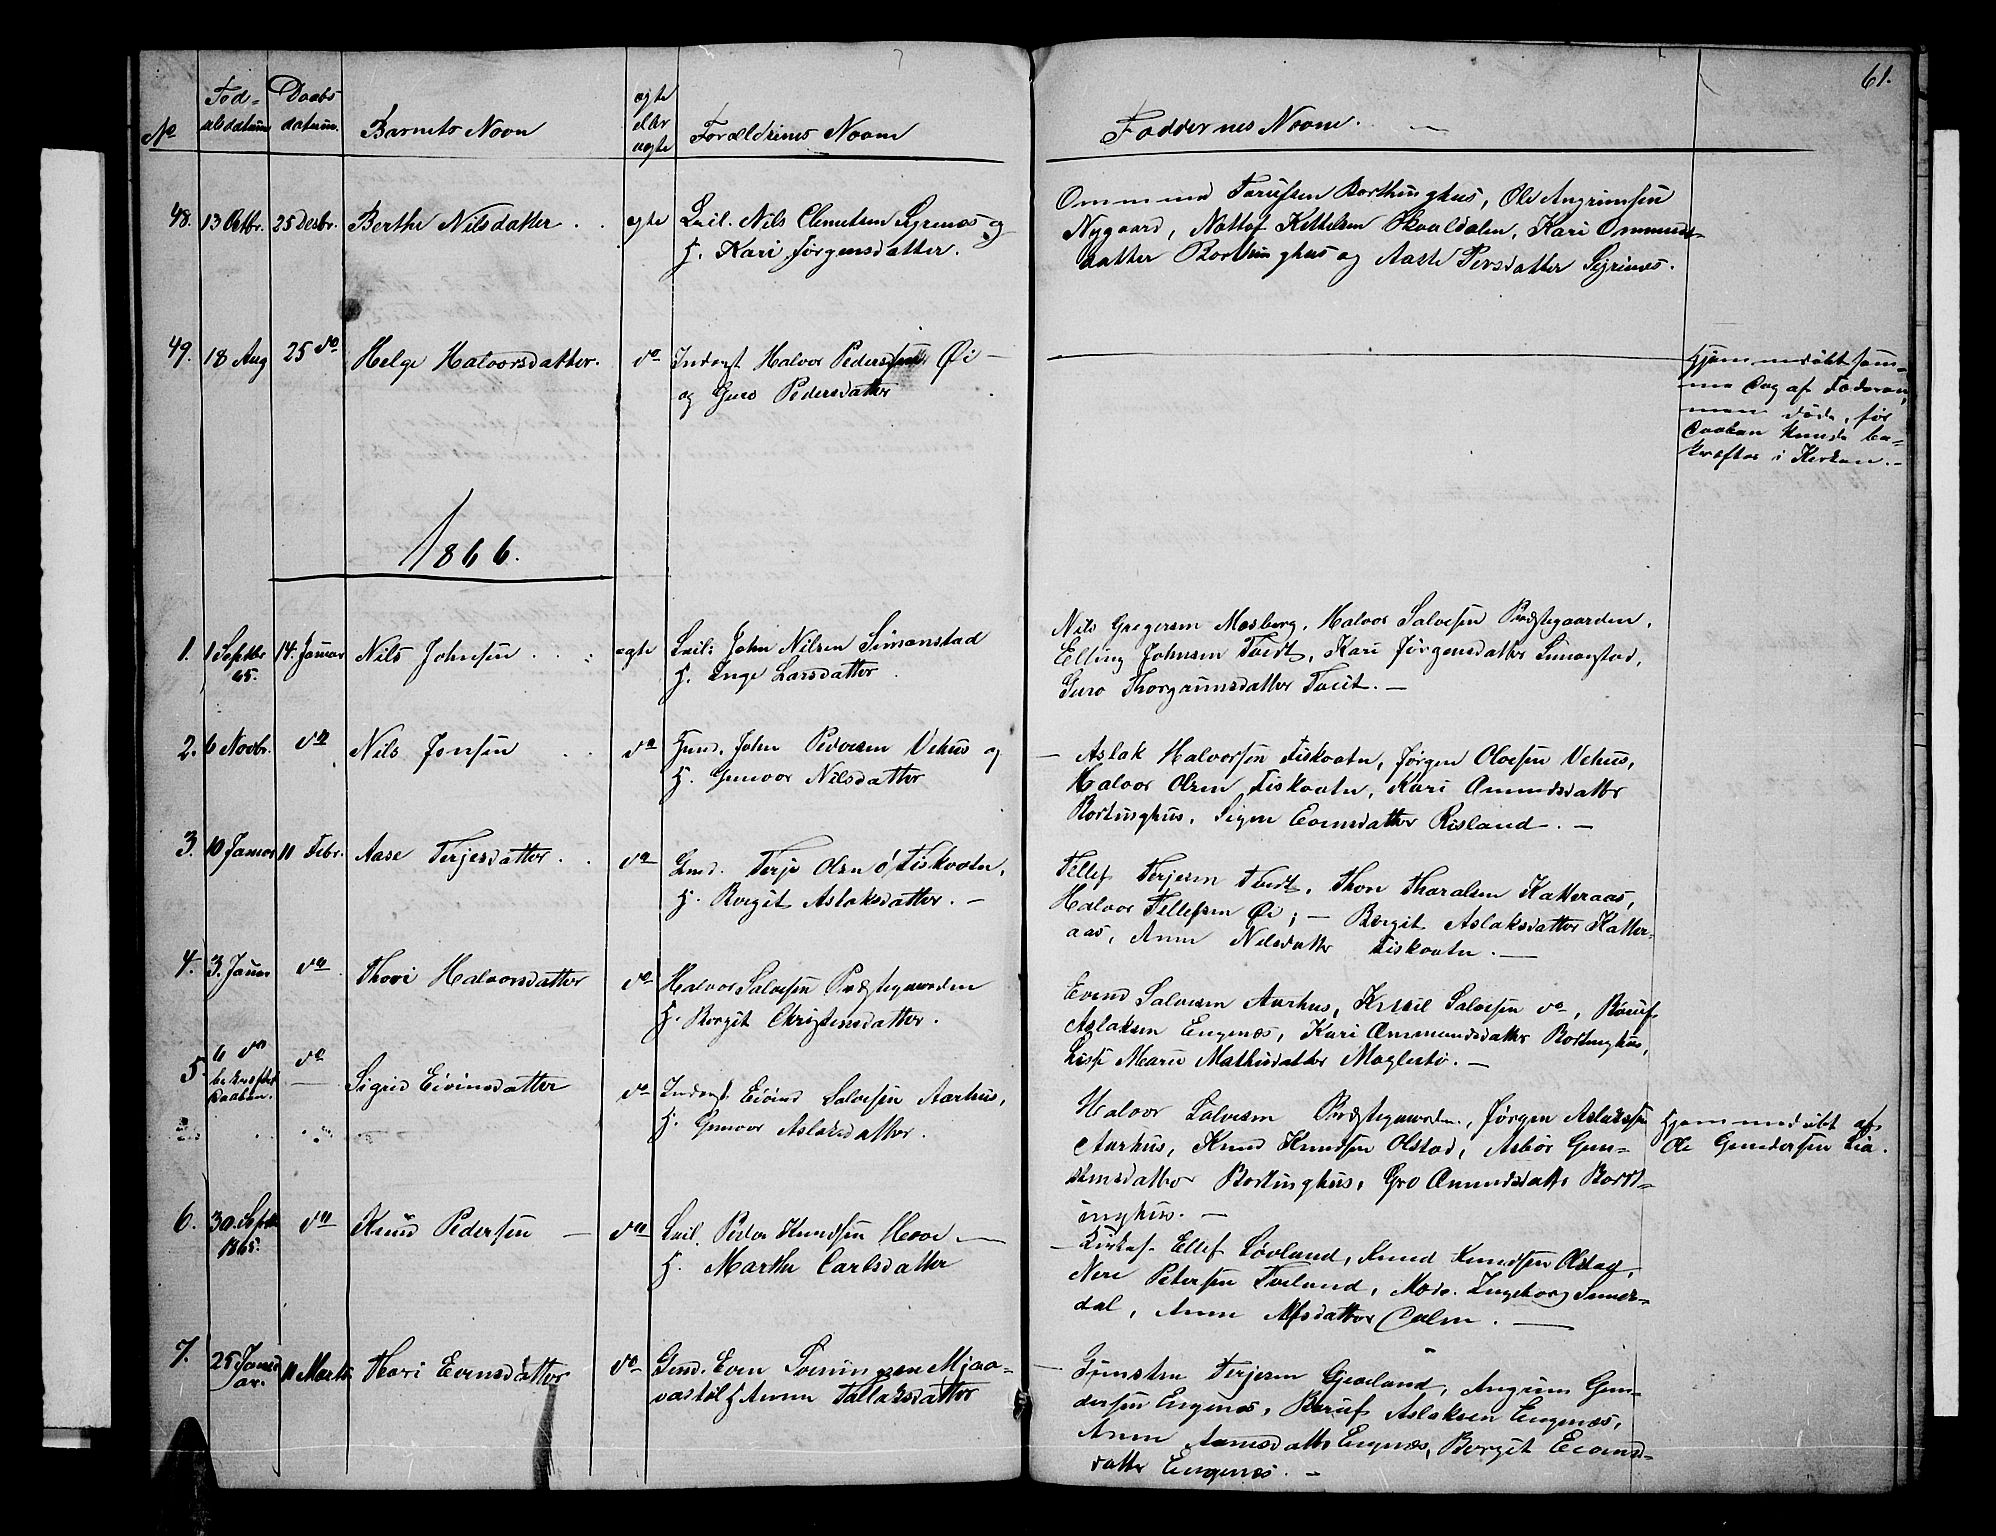 61.
No Fødselsdatum Daabsdatum. Barnets Navn ægte eller uægte Forældrenes Navne Faddernes Navne. —
48. 13 Octbr. 25 Decbr. Berthe Nilsdatter . . ægte Leil. Nils Clemetsen Sigrenæs og
H. Kari Jørgensdatter.
Ommund Borthinghus, Ole Angrimsen
Nygaard, Nottof Kittelsen Skaaldalen, Kari Ommunds-
datter Bortinghus og Aaste Persdatter Sigrinæs.
49. 18 Aug 25 do Helge Halvorsdatter. do Inderst Halvor Pedersen Øi —
og Guro Pedersdatter
Hjemmedøbt sam-
me Dag af Faderen,
men døde, før
Daaben kunde be-
kræftes i Kirken. -
1866.
1. 1 Septbr 65. 14. Januar Nils Johnsen . . : ægte Leil: John Nilsen Simonstad
H. Inge Larsdatter.
Nils Gregersen Mosberg, Halvor Salvesen Præstegaarden,
Elling Johnsen Tvedt, Kari Jørgensdatter Simonstad,
Guro Thorgrimsdatter Tveit. —
2. 6 Novbr. do Nils Jonsen . . do Gmd. John Pedersen Vehus og
H. Gunvor Nilsdatter
— Aslak Halvorsen Fiskvatn, Jørgen Olvesen Vehus,
Halvor Olsen Fiskvatn, Kari Omundsdatter
Bortinghus, Sigre Evensdatter Risland. —
3. 10 Januar 11 Febr. Aase Terjesdatter . . do Gmd. Terje Olsen Fiskvatn,
H. Birgit Aslaksdatter. —
Tellef Terjesen Tvedt, Thore Tharalsen Katteraas,
Halvor Tellefsen Øi; — Bergit Aslaksdatter Katter-
aas, Anne Nilsdatter Fiskvatn. —
4. 3. Januar do Thori Halvorsdatter do Halvor Salvesen Præstegaarden
H. Borgit Christensdatter.
Evend Salvesen Aarhus, Salvesen do,
Aslaksen Engenæs, Kari Ommundsdatter Bortinghus,
Marie Mathisdatter —
5. 6 do bekræftet Daaben. do — Sigrid Eivinsdatter do Inderst Eivind Salvesen Aarhus,
H. Gunvor Aslaksdatter.
Halvor Salvesen Præstegaarden, Jørgen Aslaksen
Aarhus, Knud Knudsen Olstad, Asbør Gun-
stensdatter Bortinghus, Gro Omundsdatter Bort-
inghus. —
Hjemmedøbt af
Ole Gundersen Lia.
6. 30. Septbr 1865. do Knud Pedersen — do Leil. Peder Knudsen —
H. Marthe Carlsdatter
— Ellef Løvland, Knud Knudsen
Petersen Tveland, Ingeborg
dal, Anne Alfsdatter Dalen. —
7. 25 Januar 11 Marts Thori Evensdatter do Gmd. Even Mjaa-
vastøl H Anne Tallaksdatter
— Gunsten Terjesen Gjevland, Angrim Gun-
dersen Engenæs, Aslaksen Engenæs,
Anne Engenæs, Borgit Eivinds-
datter Engenæs. —